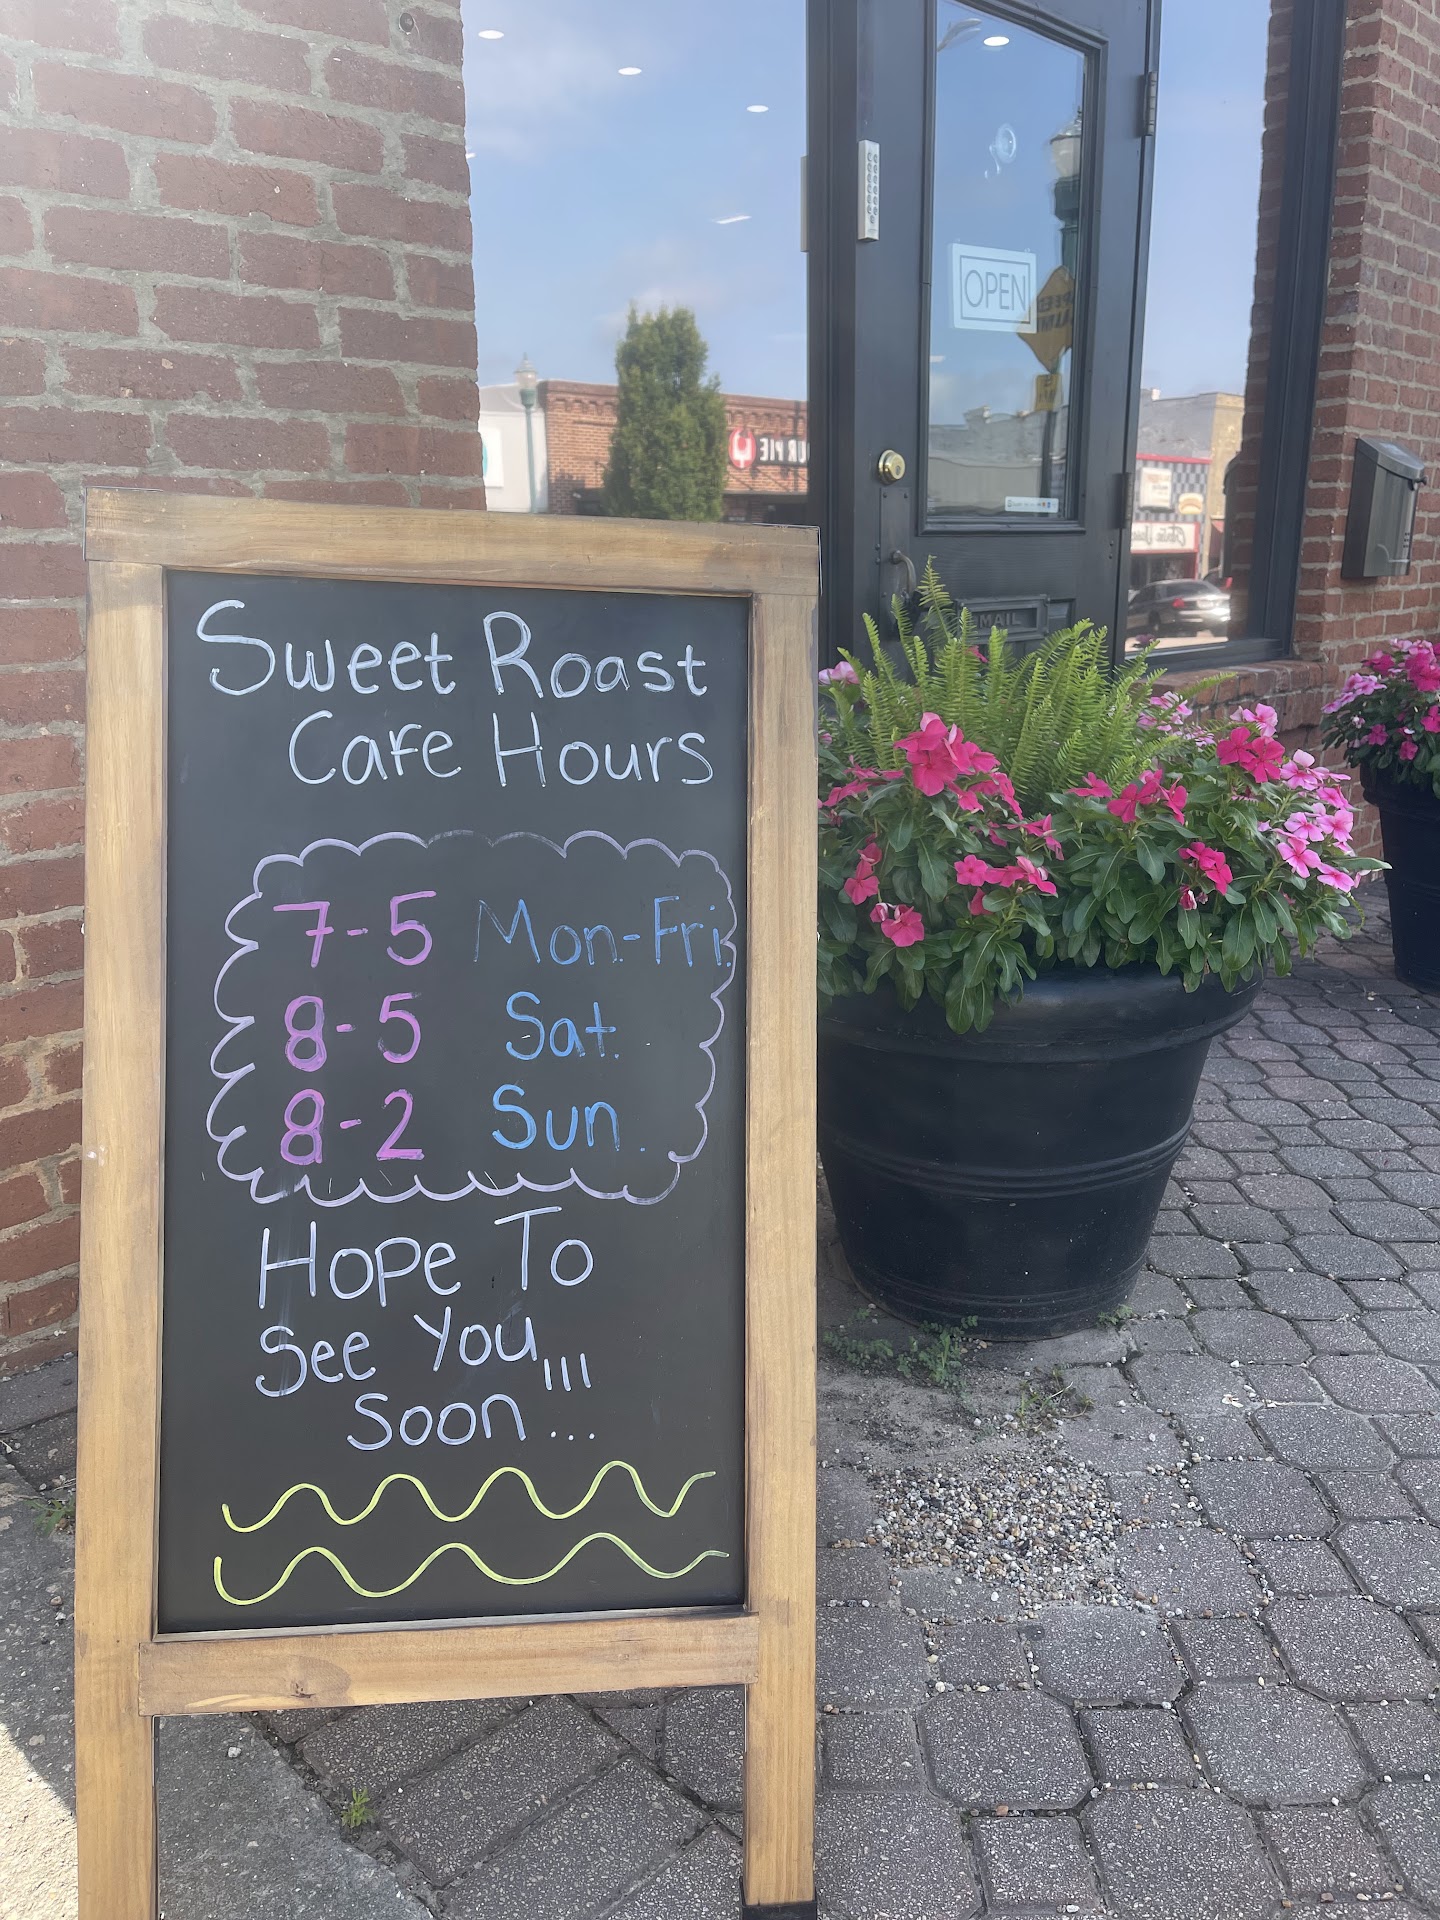 Sweet Roast
Cafe Hours
7-5 Mon-Fri.
8-5 Sat.
8-2 Sun.
Hope To
See You,,,
Soon...
OPEN
MAIL
UR PIE